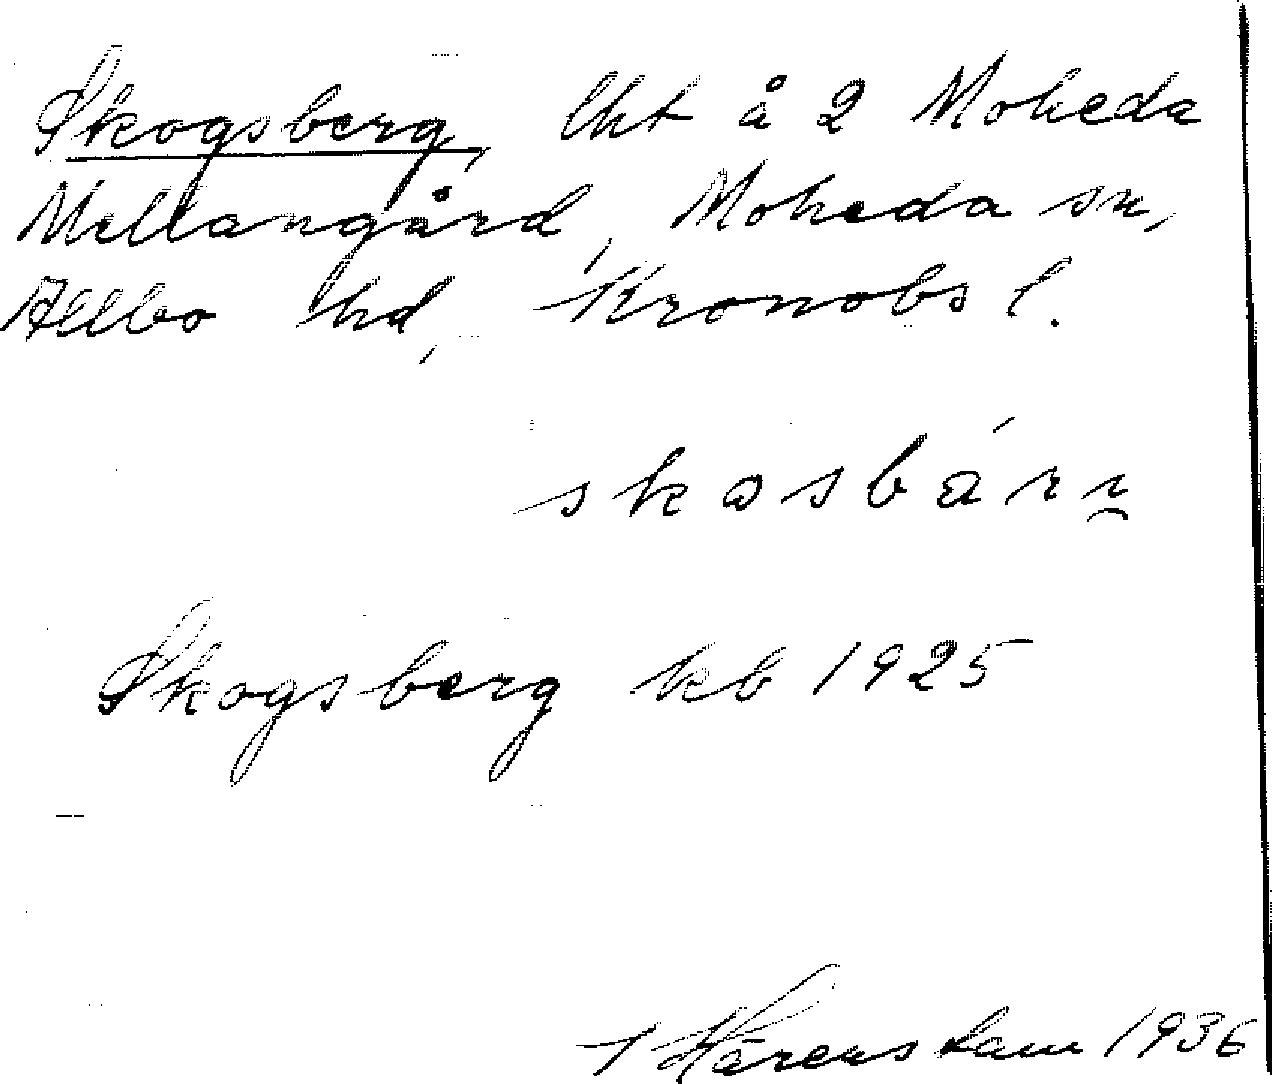 Skogsberg, lht å 2 Moheda
Mellangård, Moheda sn,
Allbo hd, Kronobs l.
skosbárr̯
Skogsberg kb 1925
Härenstam 1936